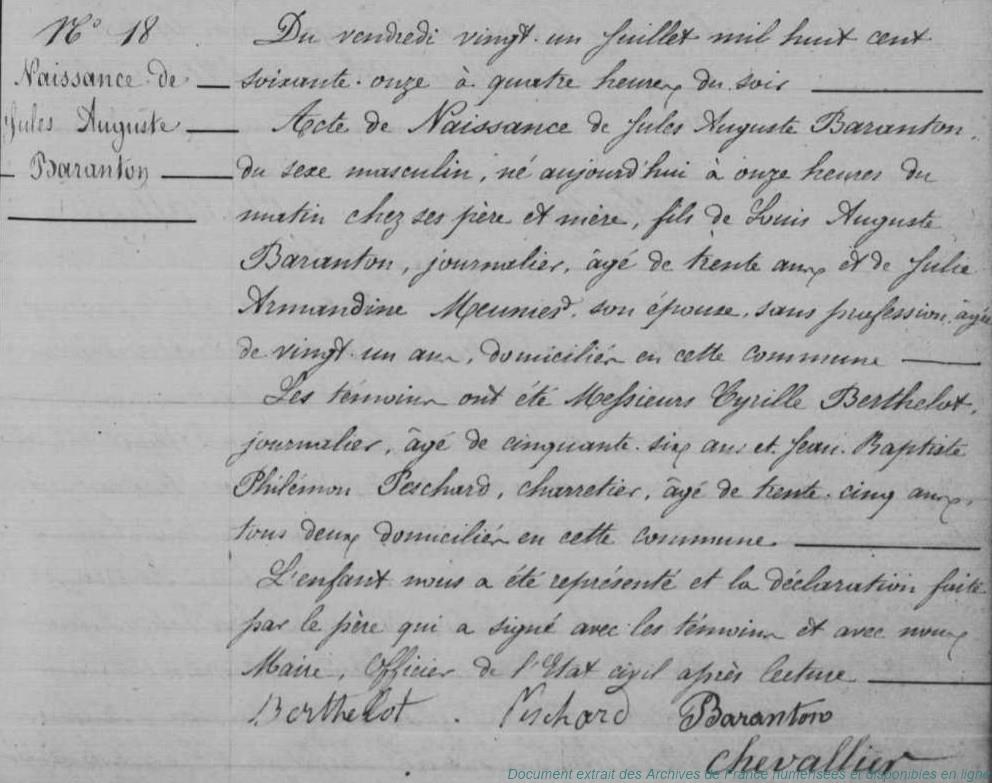 N° 18
Naissance de
Jules Auguste
Baranton
Du vendredi vingt-un Juillet mil huit cent
soixante-onze à quatre heures du soir
Acte de Naissance de Jules Auguste Baranton,
du sexe masculin, né aujourd'hui à onze heures du
matin chez ses père et mère, fils de Louis Auguste
Baranton, journalier, âgé de trente ans et de Julie
Armandine Meunier, son épouse, sans profession, âgée
de vingt-un ans, domiciliés en cette commune
Les témoins ont été Messieurs Cyrille Berthelot,
journalier, âgé de cinquante-six ans et Jean-Baptiste
Philémon Peschard, charretier, âgé de trente-cinq ans,
tous deux domiciliés en cette commune.
L'enfant nous a été représenté et la déclaration faite
par le père qui a signé avec les témoins et avec nous
Maire, Officier de l'Etat civil après lecture
Berthelot. Peschard Baranton
Chevallier
Document extrait des Archives de France numérisées et disponibles en ligne